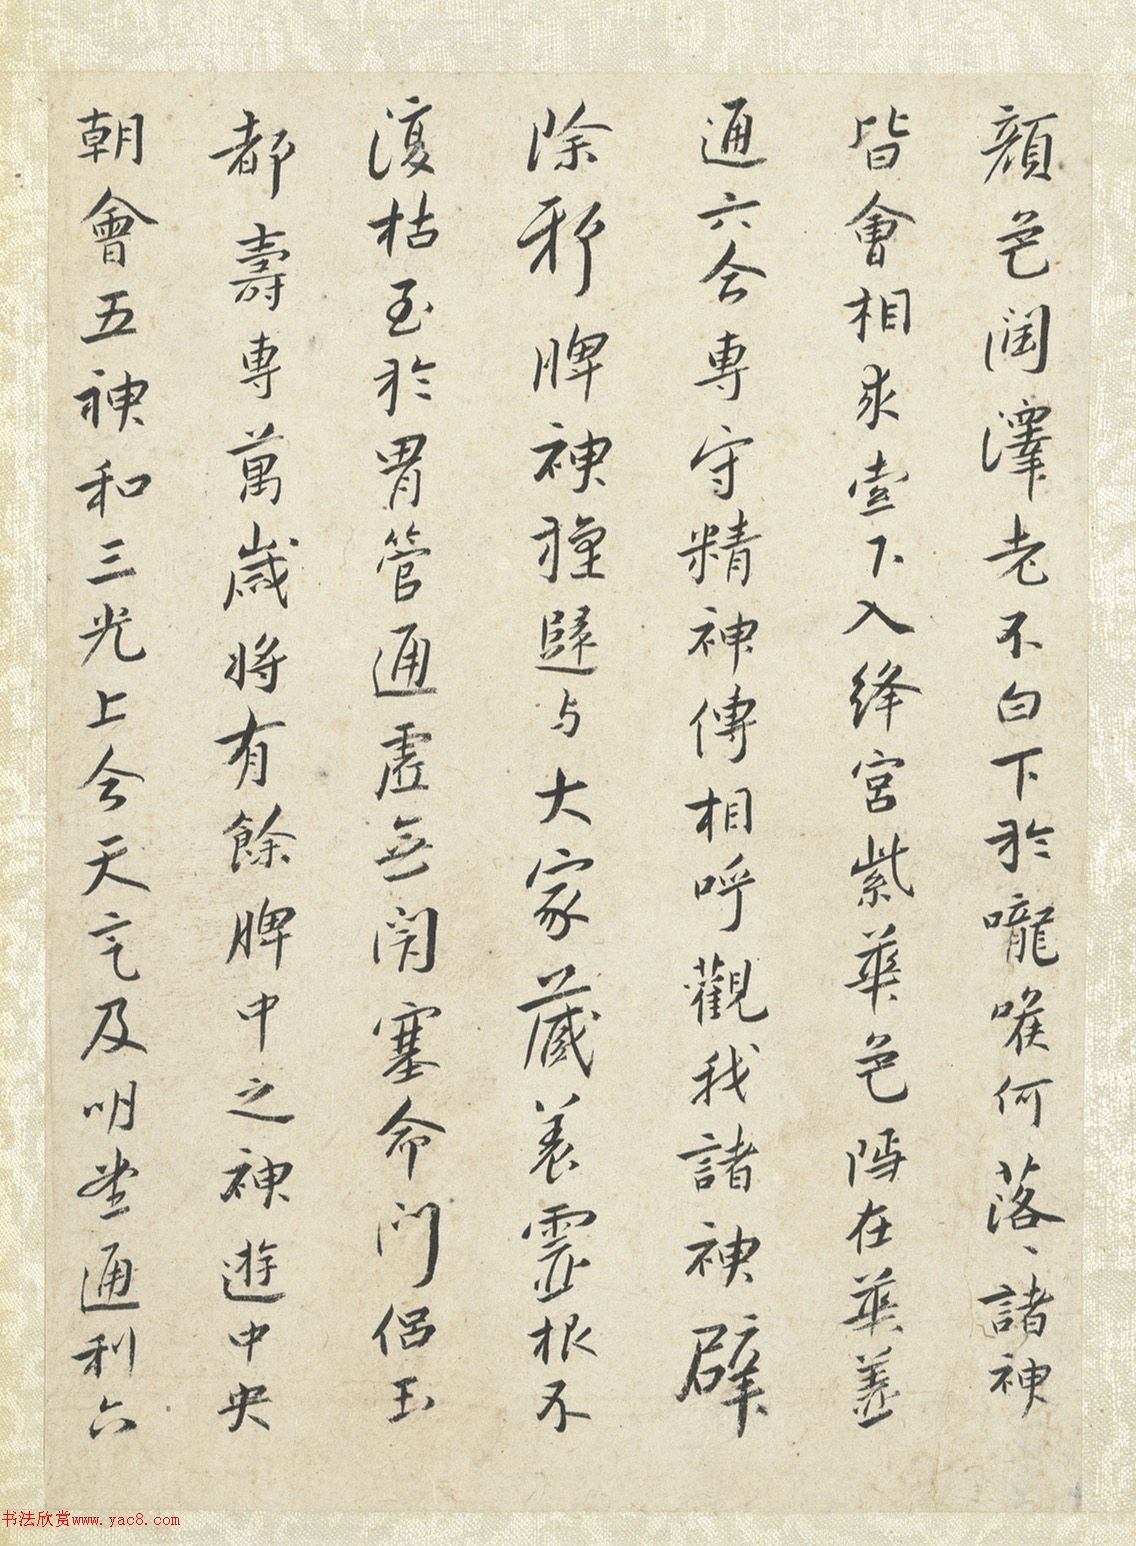 顏色潤澤老不白下於嚨喉何落〻諸神
皆會相求索下入絳宮紫華色隱在華蓋
通六合專守精神傳相呼觀我諸神辟
除邪脾神還歸與大家藏養靈根不
復枯至於胃管通虛無閉塞命門侶玉
都壽專萬歲將有餘脾中之神遊中央
朝會五神和三光上合天氣及明堂通利六
书法欣赏www.yac8.com